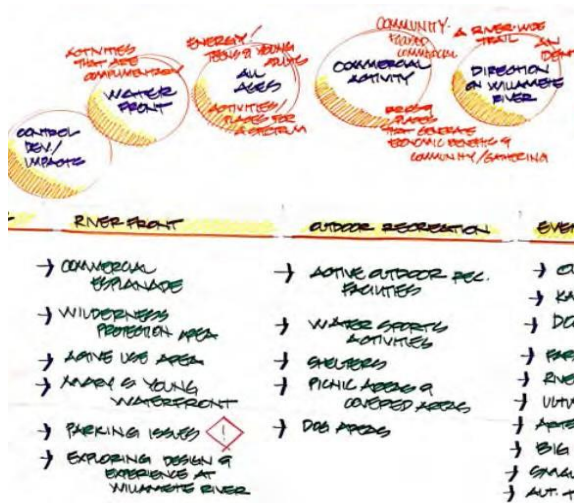 ACTIVITIES
THAT ARE
COMPLIMENTARY
WATER
FRONT
CONTROL
DEV./
IMPACTS
ENERGY/
TEENS & YOUNG
ADULTS
ALL
AGES
ACTIVITIES/
PLACES FOR
A SPECTRUM
COMMUNITY-
FOCUSED
COMMERCIAL
COMMERCIAL
ACTIVITY
PLACES
THAT GENERATE
ECONOMIC BENEFITS &
COMMUNITY/GATHERING
A RIVER-WIDE
TRAIL
AN
IDENT
DIRECTION
ON WILLAMETE
RIVER
RIVER FRONT
→ COMMERCIAL
ESPLANADE
→ WILDERNESS
PROTECTION AREA
→ ACTIVE USE AREA
→ MARY S YOUNG
WATERFRONT
→ PARKING ISSUES !
→ EXPLORING DESIGN &
EXPERIENCE AT
WILLAMETE RIVER
OUTDOOR RECREATION
→ ACTIVE OUTDOOR REC.
FACILITIES
→ WATER SPORTS
ACTIVITIES
→ SHELTERS
→ PICNIC AREAS &
COVERED AREAS
→ DOG AREAS
EVEN
→ KA
→ DO
→ FAR
→ RIVE
→ BIG
→ SMALL